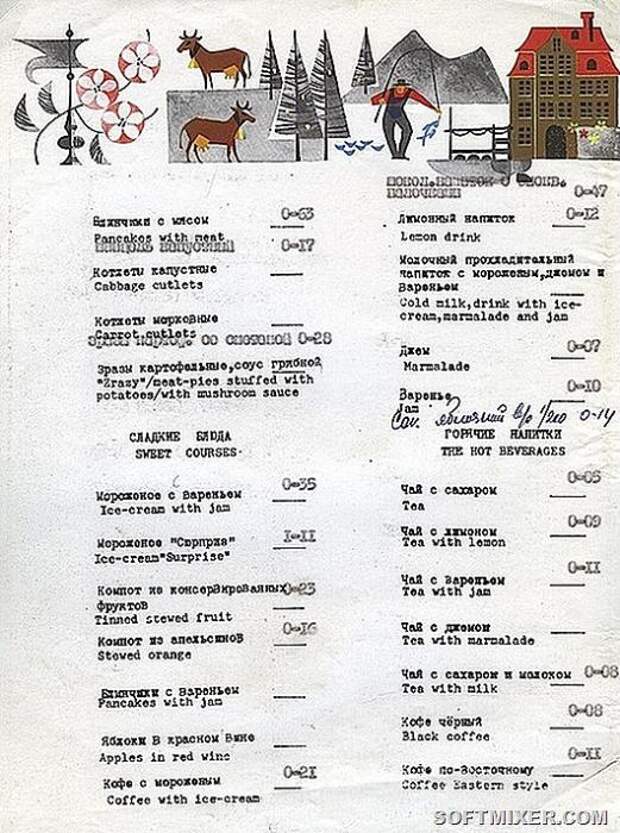 Блинчики с мясом 0-63
Pancakes with meat
0-17
Котлеты капустные
Cabbage cutlets
Котлеты морковные
Carrot cutlets
со сметаной 0-28
Зразы картофельные,соус грибной
"Zrazy"/meat-pies stuffed with
potatoes/with mushroom sauce
СЛАДКИЕ БЛЮДА
SWEET COURSES
0-35
Мороженое с вареньем
Ice-cream with jam
Мороженое "Сюрприз" I-II
Ice-cream"Surprise"
Компот из консервированных 0-23
фруктов
Tinned stewed fruit
0-16
Компот из апельсинов
Stewed orange
Блинчики с вареньем
Pancakes with jam
Яблоки в красном вине
Apples in red wine
0-21
Кофе с мороженым
Coffee with ice-cream
0-47
Лимонный напиток 0-12
Lemon drink
Молочный прохладительный
напиток с мороженым,джемом и
вареньем
Cold milk,drink with ice-
cream,marmalade and jam
0-07
Джем
Marmalade
0-10
Варенье
Jam
яблочный 1/200 0-14
ГОРЯЧИЕ НАПИТКИ
THE HOT BEVERAGES
0-05
Чай с сахаром
Tea
0-09
Чай с лимоном
Tea with lemon
0-II
Чай с вареньем
Tea with jam
Чай с джемом
Tea with marmalade
Чай с сахаром и молоком 0-08
Tea with milk
0-08
Кофе чёрный
Black coffee
0-II
Кофе по-восточному
Coffee Eastern style
SOFTMIXER.COM